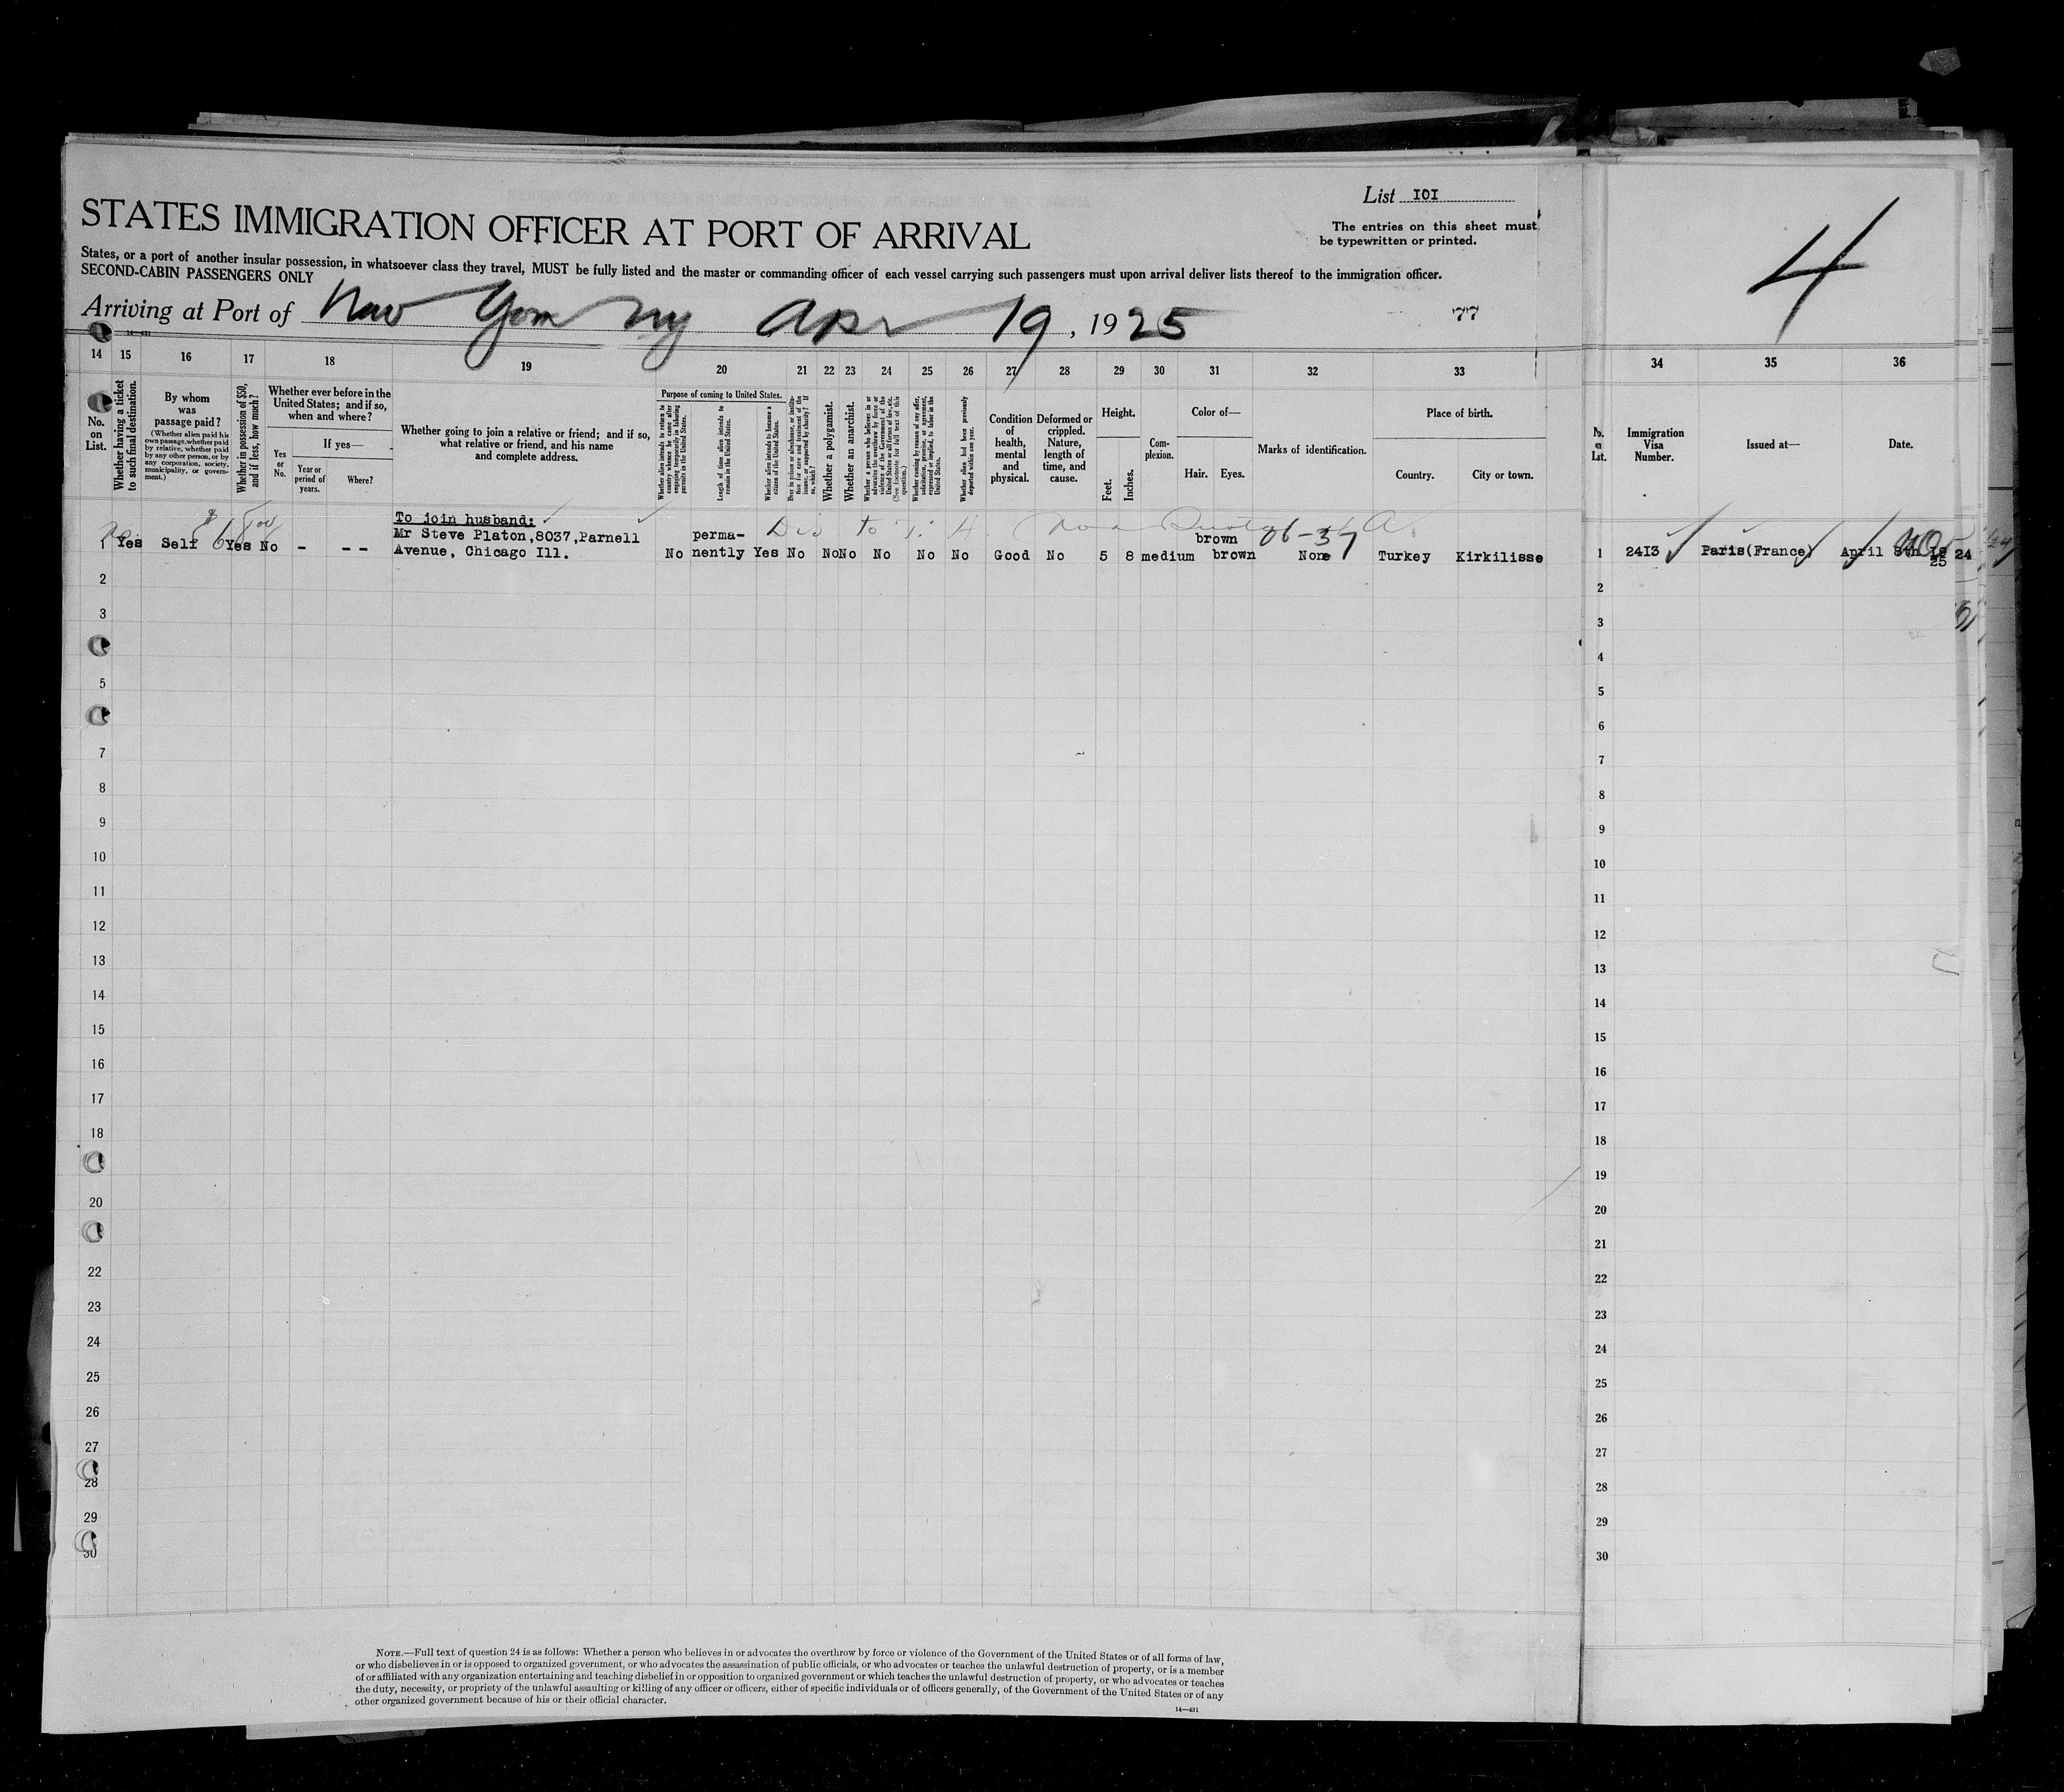 List IOI
STATES IMMIGRATION OFFICER AT PORT OF ARRIVAL
The entries on this sheet must
be typewritten or printed.
States, or a port of another insular possession, in whatsoever class they travel, MUST be fully listed and the master or commanding officer of each vessel carrying such passengers must upon arrival deliver lists thereof to the immigration officer.
SECOND-CABIN PASSENGERS ONLY
4
Arriving at Port of New York NY Apr 19, 1925
77
14—431
14 15 16 17 18 19 20 21 22 23 24 25 26 27 28 29 30 31 32 33 34 35 36
No. on List.
Whether having a ticket to such final destination.
By whom was passage paid?
(Whether alien paid his own passage, whether paid by relative, whether paid by any other person, or by any corporation, society, municipality, or government.)
Whether in possession of $50, and if less, how much?
Whether ever before in the United States; and if so, when and where?
Yes or No.
If yes—
Year or period of years.
Where?
Whether going to join a relative or friend; and if so, what relative or friend, and his name and complete address.
Purpose of coming to United States.
Whether alien intends to return to country whence he came after engaging temporarily in laboring pursuits in the United States.
Length of time alien intends to remain in the United States.
Whether alien intends to become a citizen of the United States.
Ever in prison or almshouse, or institution for care and treatment of the insane, or supported by charity? If so, which?
Whether a polygamist.
Whether an anarchist.
Whether a person who believes in or advocates the overthrow by force or violence of the Government of the United States or all forms of law, etc. (See footnote for full text of this question.)
Whether coming by reason of any offer, solicitation, promise, or agreement, expressed or implied, to labor in the United States.
Whether alien had been previously deported within one year.
Condition of health, mental and physical.
Deformed or crippled. Nature, length of time, and cause.
Height.
Feet. Inches.
Complexion.
Color of—
Hair. Eyes.
Marks of identification.
Place of birth.
Country. City or town.
No. on List.
Immigration Visa Number.
Issued at—
Date.
To join husband:
1 Yes Self Yes No - - - Mr Steve Platon,8037,Parnell
Avenue, Chicago Ill.
No perma-
nently Yes No No No No No No Good No 5 8 medium brown
brown 06-37 None Turkey Kirkilisse
1 24I3 Paris(France) April 8th I9 24
25
2 2
3 3
4
5 5
6
7 7
8 8
9 9
10 10
11 11
12 12
13 13
14 14
15 15
16 16
17 17
18 18
19
20 20
21
22 22
23 23
24 24
25 25
26 26
27 27
28 28
29 29
30 30
NOTE.—Full text of question 24 is as follows: Whether a person who believes in or advocates the overthrow by force or violence of the Government of the United States or of all forms of law,
or who disbelieves in or is opposed to organized government, or who advocates the assassination of public officials, or who advocates or teaches the unlawful destruction of property, or is a member
of or affiliated with any organization entertaining and teaching disbelief in or opposition to organized government or which teaches the unlawful destruction of property, or who advocates or teaches
the duty, necessity, or propriety of the unlawful assaulting or killing of any officer or officers, either of specific individuals or of officers generally, of the Government of the United States or of any
other organized government because of his or their official character.
14—431